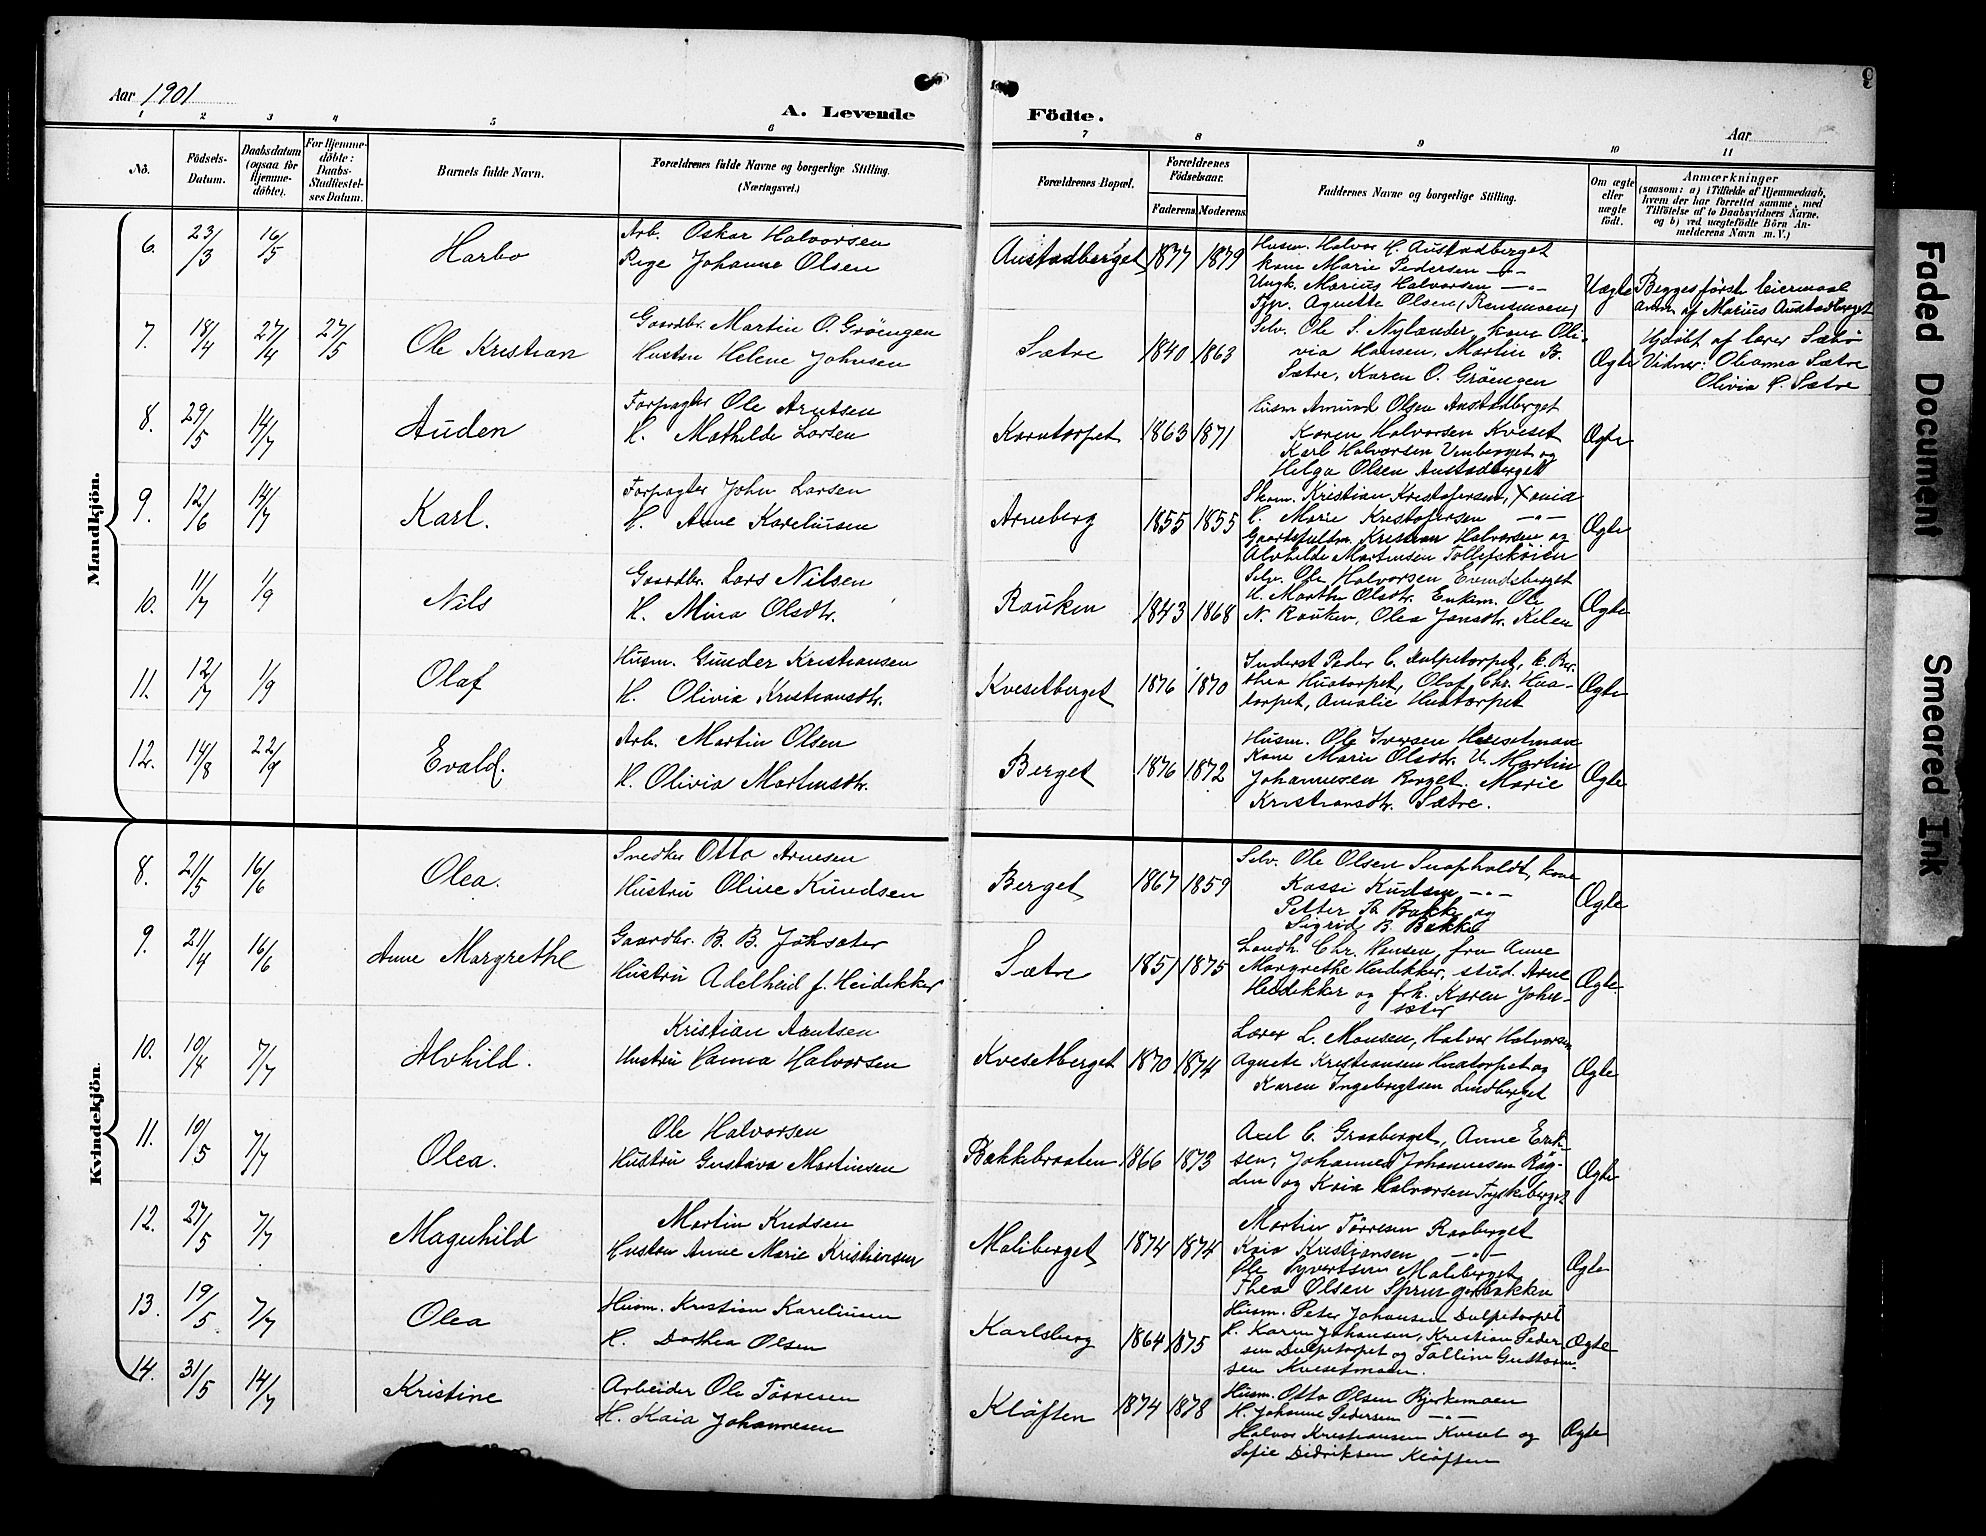 Aar 1901
A. Levende Födte.
Aar
1 2 3 4 5 6 7 8 9 10 11
No. Födsels-Datum. Daabsdatum (ogsaa for Hjemmedöbte). For Hjemmedöbte: Daabs-Stadfæstelses Datum. Barnets fulde Navn. Forældrenes fulde Navne og borgerlige Stilling. (Næringsvei.) Forældrenes Bopæl. Forældrenes Födselsaar. Faderens Moderens Faddernes Navne og borgerlige Stilling. Om ægte eller uægte født. Anmærkninger (saasom: a) i Tilfælde af Hjemmedaab, hvem der har forrettet samme, med Tilföielse af to Daabsvidners Navne. og b) ved uægtefödte Börn Anmelderens Navn m.V.)
Mandkjön.
6. 23/3 16/5 Harbo
Arb. Oskar Halvorsen
Pige Johanne Olsen
Austadberget 1877 1879
Husm. Halvor H. Austadberget
kone Marie Pedersen —"—
Ungk. Marius Halvorsen —"—
Pige. Agnette Olsen
Uægte
Begges første leiermaal
anm. af Marius Austadberget
7. 18/4 27/4 27/5 Ole Kristian
Gaardbr. Martin O. Gröengen
Hustru Helene Johnsen
Sætre 1840 1863
Selv. Ole S. Nylænder, kone Oli-
via Hansen, Martin B.
Sætre, Karen O. Gröengen
Ægte
Hjdöbt af lærer Sætre
Vidner: Oleanna Sætre
Olivia H. Sætre
8. 29/5 14/7 Auden
Forpagter Ole Arntsen
H. Mathilde Larsen
Korntorpet 1863 1871
Husm Amund Olsen Austadberget
Karen Halvorsen Kveset
Karl Halvorsen Vinberget og
Helga Olsen Austadberget
Ægte
9. 12/6 14/7 Karl.
Forpagter John Larsen
H. Anne Kareliusen
Arneberg 1855 1855
Skom. Kristian Kristofersen,
H. Marie Kristofersen —"—
Kristian Halvorsen og
Alvhilde Martinsen Tollefskoien
Ægte
10. 11/7 1/9 Nils
Gaardbr. Lars Nilsen
H. Mina Olsdtr.
Rauken 1843 1868
Selv. Ole Halvorsen Evendsberget
H. Marthe Olsdtr. Enkem. Ole
N. Rauken, Olea Jansdtr. Kilen
Ægte
11. 12/7 1/9 Olaf
Husm. Gunder Kristiansen
H. Olivia Kristiansdtr.
Kvesetberget 1876 1870
Inderst Peder C. Dulpetorpet, H. Ber-
thea Huatorpet, Olaf Chr. Hua-
torpet, Amalie Huatorpet
Ægte
12. 14/8 22/9 Evald.
Arb. Martin Olsen
H. Olivia Martinsdtr.
Berget 1876 1872
Husm. Ole Iversen Kvesetmoen
Kone Marie Olsdtr. U. Martin
Johannesen Berget. Marie
Kristiansdtr. Sætre.
Ægte
Kvindekjön.
8. 21/5 16/6 Olea.
Snedker Otto Arnesen
Hustru Oline Knudsen
Berget 1867 1859
Selv. Ole Olsen Snapholdt, kone
Kassi Knudsen —"—
Petter B. Bakke og
Sigrid B. Bakke
Ægte
9. 21/4 16/6 Anne Margrethe
Gaardbr. B. B. Johsæter
Hustru Adelheid f. Heidekker
Sætre 1851 1875
Landh. Chr. Hansen, fru Anne
Margrethe Heidekker, stud. Arne
Heidekker og frk. Karen John-
sæter
Ægte.
10. 10/4 7/7 Alvhild.
Kristian Arntsen
Hustru Hanna Halvorsen
Kvesetberget 1870 1874
Lærer L. Monsen, Halvor Halvorsen
Agnete Kristiansen Huatorpet og
Karen Ingebrigtsen Lindberget
Ægte
11. 10/5 7/7 Olea.
Ole Halvorsen
Hustru Gustava Martinsen
Bakkebraaten 1866 1873
Axel C. Graaberget, Anne Erik-
sen, Johannes Johannesen Rög-
den og Kaia Halvorsen Tyskeberget
Ægte
12. 27/5 7/7 Magnhild
Martin Knudsen
Hustru Anne Marie Kristiansen
Maliberget 1874 1874
Martin Törresen Raaberget
Kaia Kristiansen —"—
Ole Syvertsen Maliberget
Thea Olsen Springarbakken
Ægte
13. 19/5 7/7 Olea
Husm. Kristian Kareliusen
H. Dorthea Olsen
Karlsberg 1864 1875
Husm. Peter Johansen Dulpetorpet
H. Karen Johansen, Kristian Peder-
sen Dulpetorpet og Talline Guttorm-
sen Kvesetmoen.
Ægte
14. 31/5 14/7 Kristine
Arbeider Ole Törresen
H. Kaia Johannesen
Kläften 1874 1878
Husm. Otto Olsen Bjerkemoen
H. Johanne Pedersen —"—
Halvor Kristiansen Kveset og
Sofie Didriksen Kläften
Ægte
Faded Document
Smeared Ink